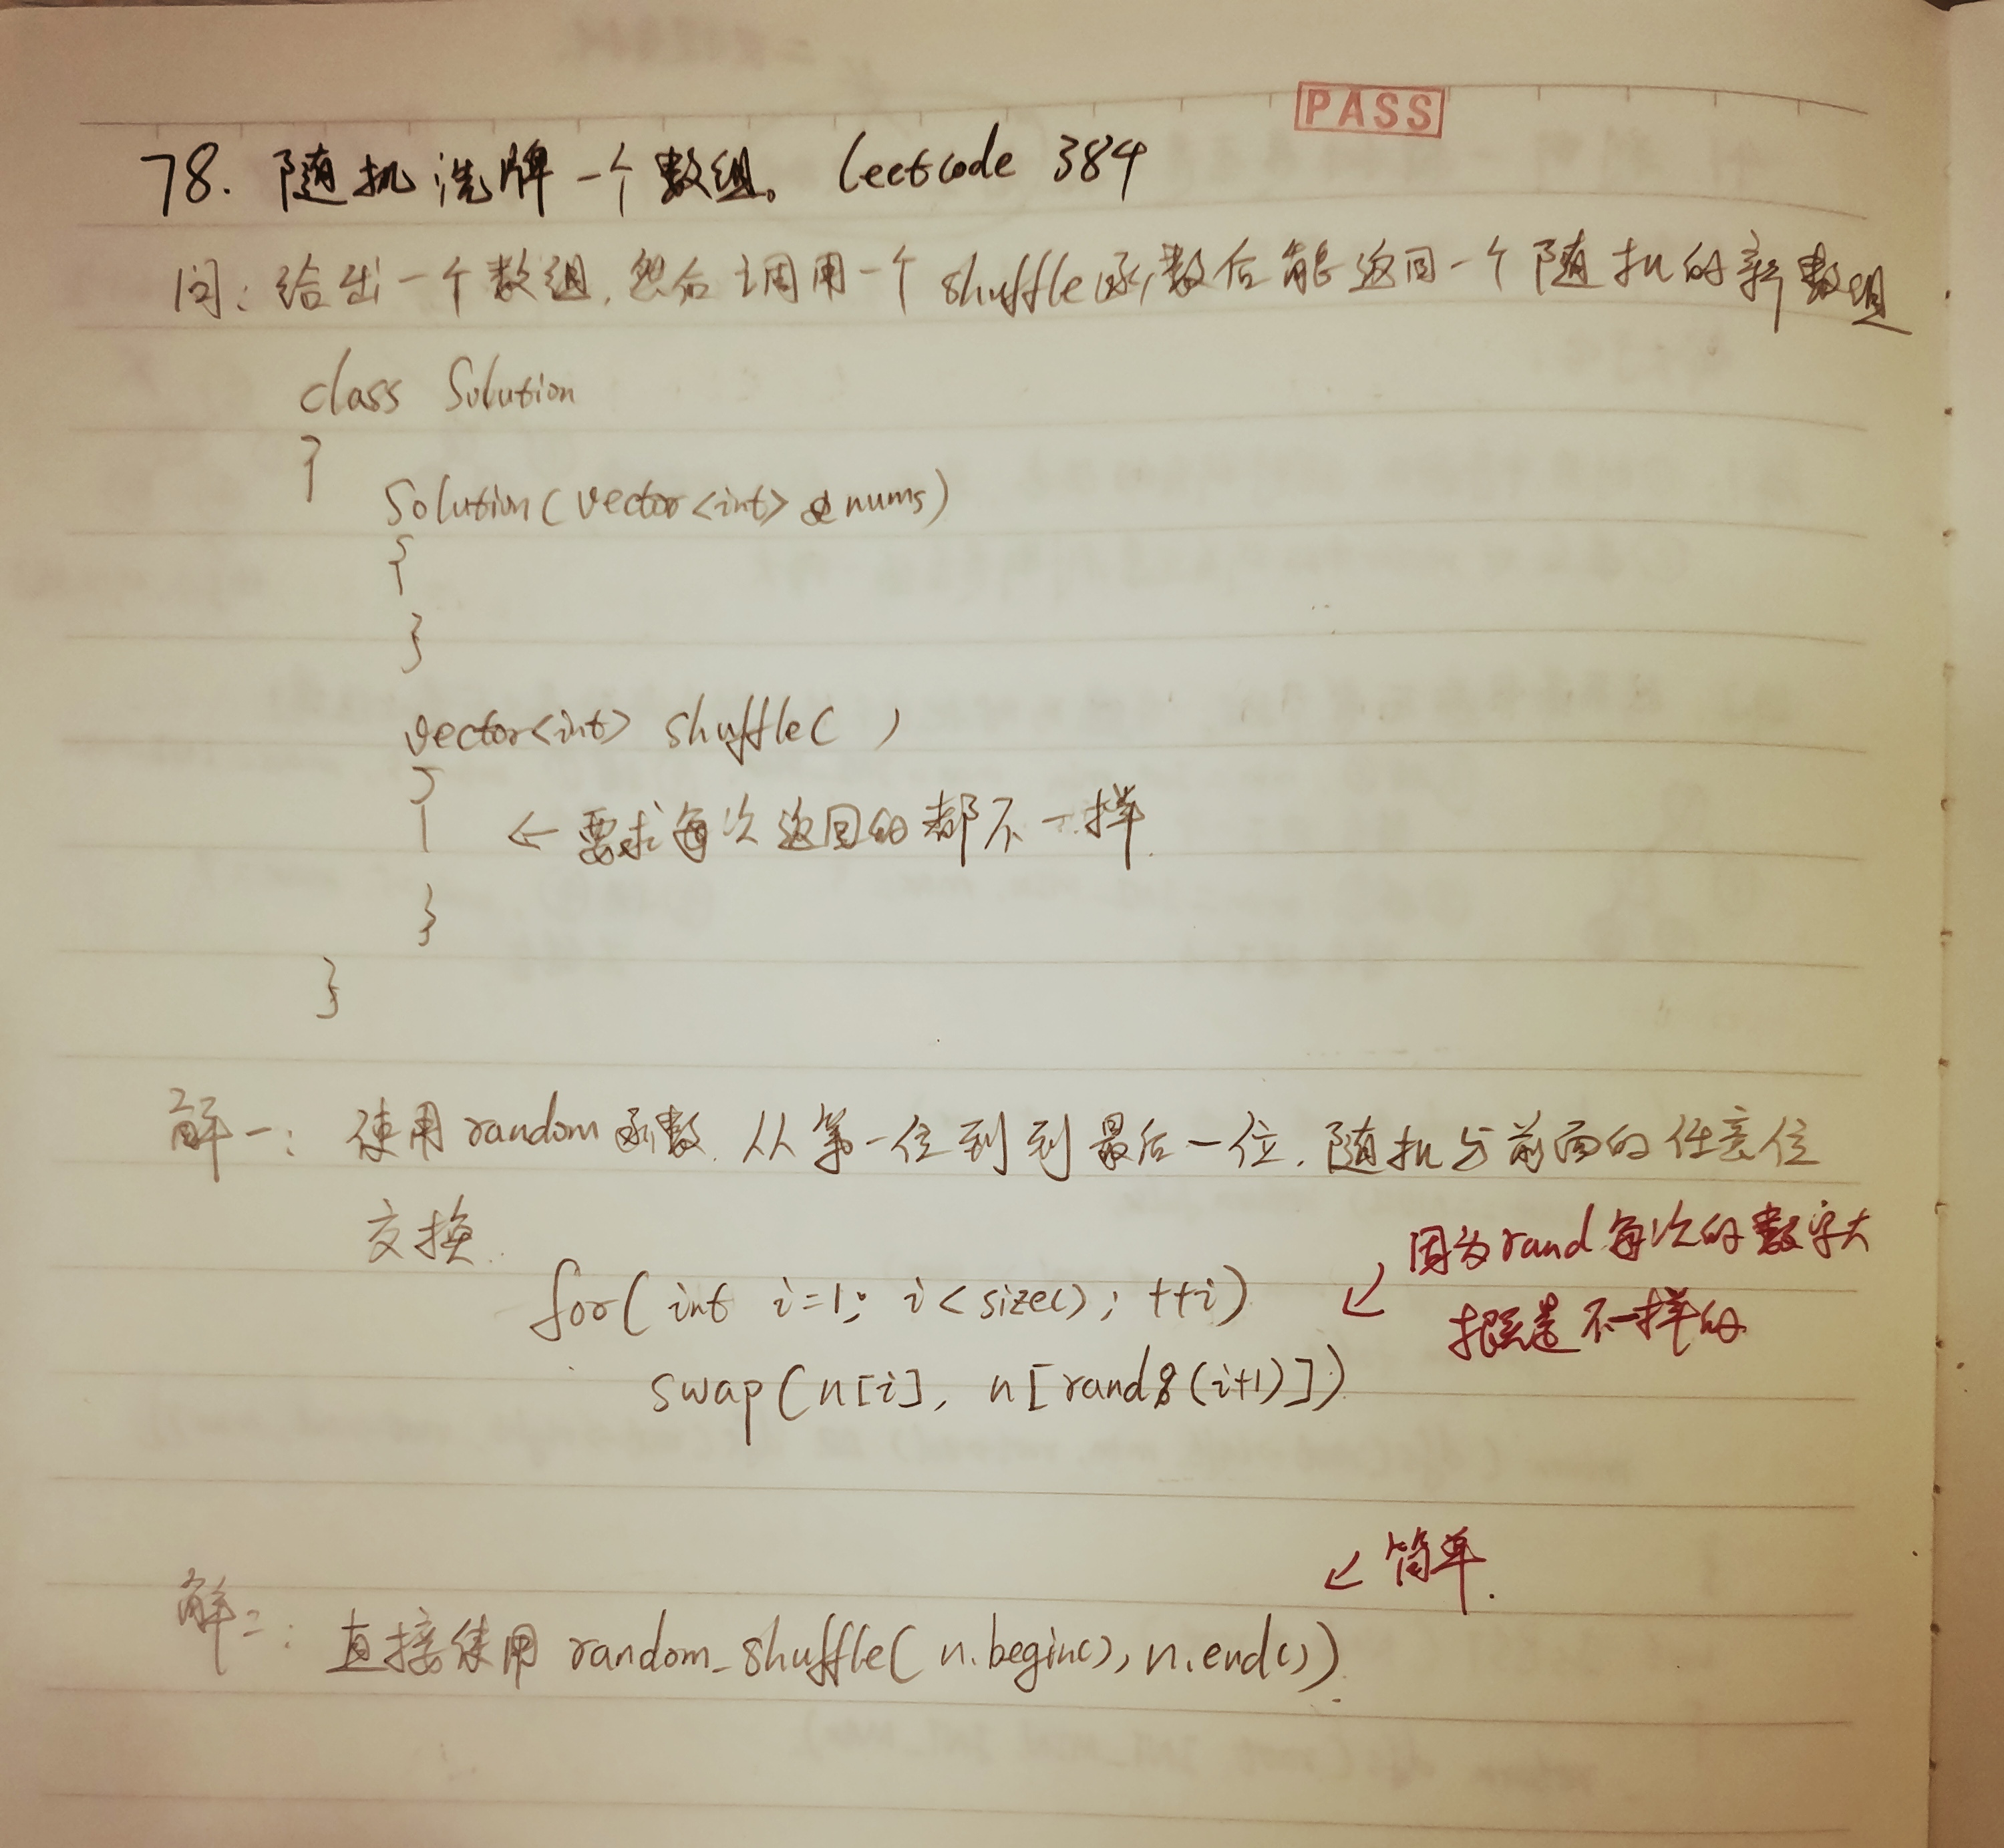 PASS
78. 随机洗牌一个数组。leetcode 384
问: 给出一个数组,然后调用一个shuffle函数后能返回一个随机的新数组
class Solution
{
Solution(vector<int> &nums)
{
}
vector<int> shuffle( )
{
← 要求每次返回的都不一样
}
}
解一: 使用random函数.从第一位到到最后一位.随机与前面的任意位
交换.
因为rand每次的数字大
for(int i=1; i<size(); ++i)
↙
是不一样的
swap(n[i], n[rand%(i+1)])
↙ 简单.
解二: 直接使用 random_shuffle(n.begin(), n.end())